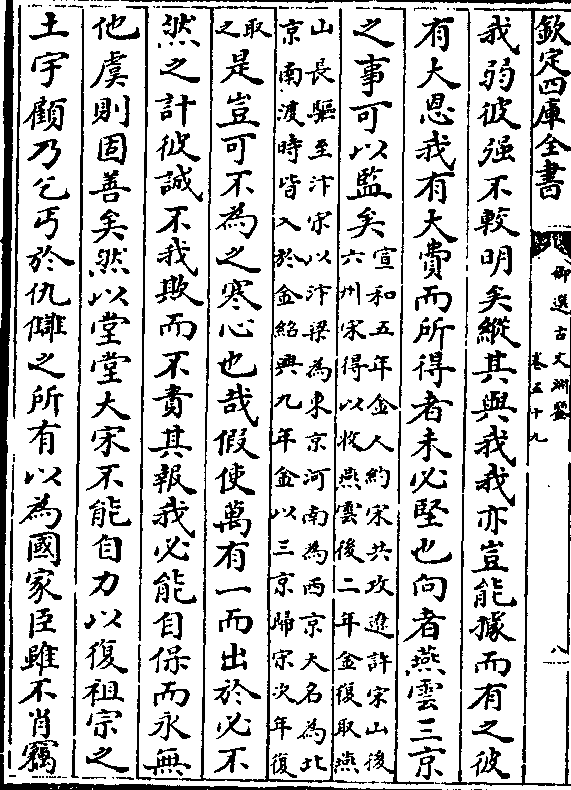 欽定四庫全書
御選古文淵鑒
卷五十九
八
我弱彼强不較明矣縱其與我我亦豈能據而有之彼
有大恩我有大費而所得者未必堅也向者燕雲三京
之事可以監矣
宣和五年金人約宋共攻遼許宋山後
六州宋得以收燕雲後二年金復取燕
山長驅至汴宋以汴梁為東京河南為西京大名為北
京南渡時皆入於金紹興九年金以三京歸宋次年復
取
之
是豈可不為之寒心也哉假使萬有一而出於必不
然之計彼誠不我欺而不責其報我必能自保而永無
他虞則固善矣然以堂堂大宋不能自力以復祖宗之
土宇顧乃乞丐於仇讎之所有以為國家臣雖不肖竊